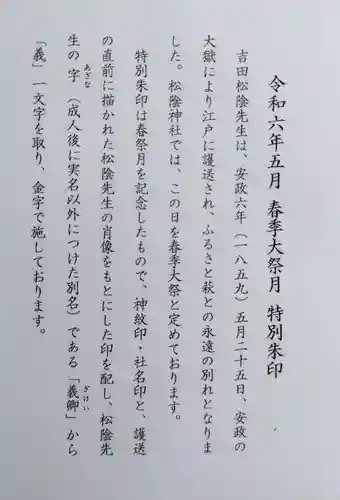 令和六年五月 春季大祭月 特別朱印
吉田松陰先生は、安政六年（一八五九）五月二十五日、安政の
大獄により江戸に護送され、ふるさと萩との永遠の別れとなりま
した。松陰神社では、この日を春季大祭と定めております。
特別朱印は春祭月を記念したもので、神紋印・社名印と、護送
の直前に描かれた松陰先生の肖像をもとにした印を配し、松陰先
生の字（成人後に実名以外につけた別名）である「義卿」から
あざな
ぎけい
「義」一文字を取り、金字で施しております。